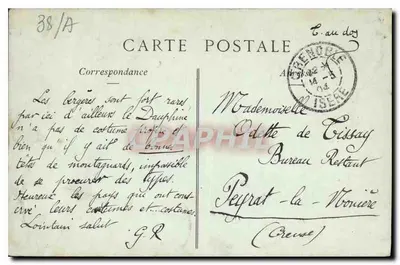 38/A
T. au dos
CARTE POSTALE
Correspondance
GRENOBLE
14 - 3
04
ISERE
Les bergères sont fort rares
par ici d'ailleurs le Dauphiné
n'a pas de costume propre et
bien qu'il y ait de bonnes
têtes de montagnards, impossible
de se procurer des types.
Heureux les pays qui ont con-
servé leurs coutumes et costumes
Lointain salut
G R
Mademoiselle
Odette de Tissay
Bureau Restant
Peyrat-la-Nonière
(Creuse)